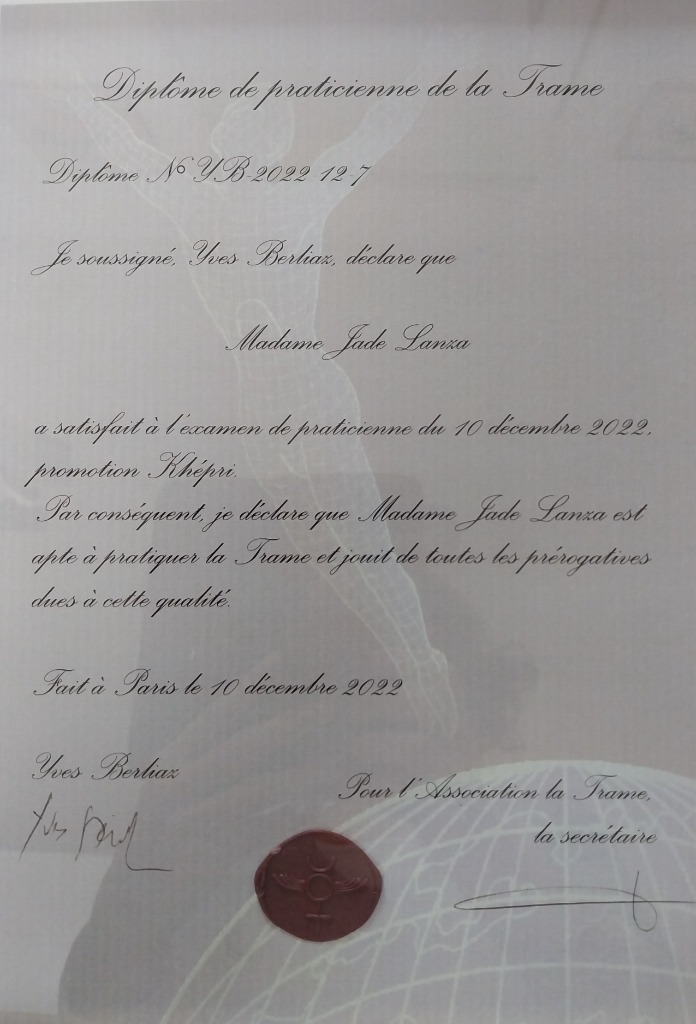 Diplôme de praticienne de la Trame
Diplôme N° YB-2022-12-7
Je soussigné, Yves Berliaz, déclare que
Madame Jade Lanza
a satisfait à l'examen de praticienne du 10 décembre 2022,
promotion Khépri.
Par conséquent, je déclare que Madame Jade Lanza est
apte à pratiquer la Trame et jouit de toutes les prérogatives
dues à cette qualité.
Fait à Paris le 10 décembre 2022
Yves Berliaz
Pour l'Association la Trame,
la secrétaire